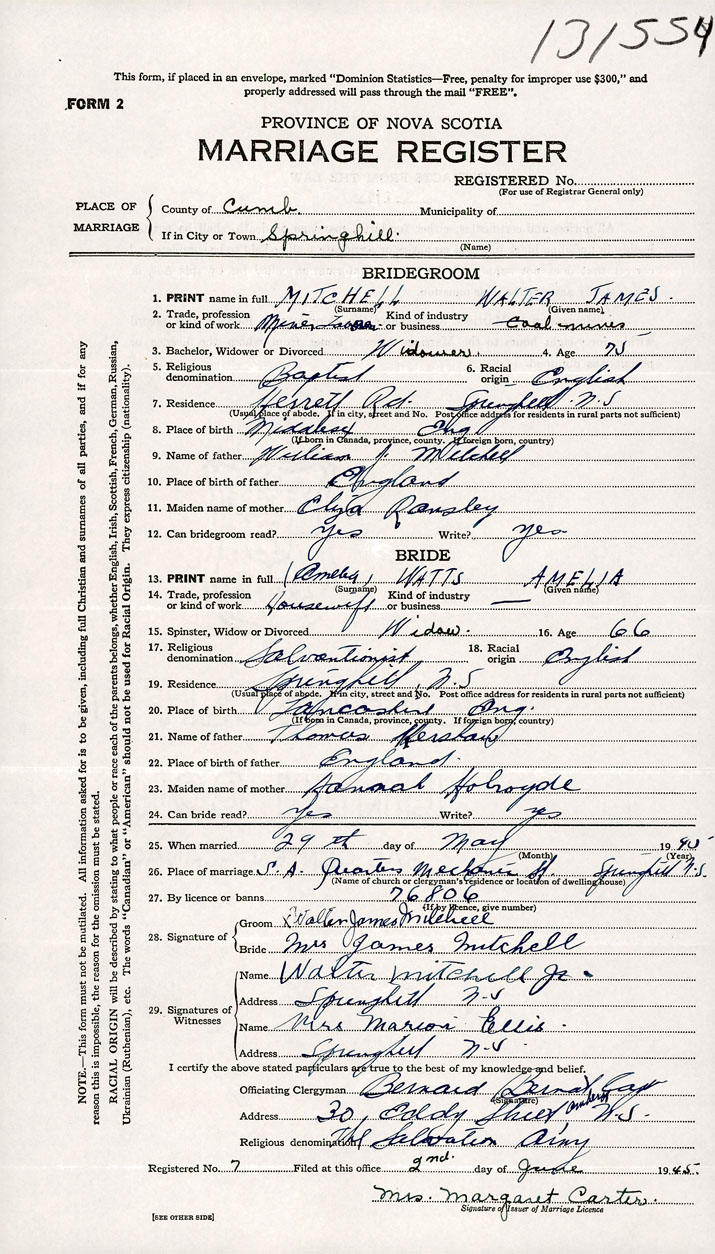 131554
This form, if placed in an envelope, marked "Dominion Statistics—Free, penalty for improper use $300," and
properly addressed will pass through the mail "FREE".
FORM 2
PROVINCE OF NOVA SCOTIA
MARRIAGE REGISTER
REGISTERED No.
(For use of Registrar General only)
PLACE OF MARRIAGE
County of Cumb. Municipality of
If in City or Town Springhill.
(Name)
BRIDEGROOM
1. PRINT name in full MITCHELL WALTER JAMES.
(Surname) (Given name)
2. Trade, profession or kind of work Miner Kind of industry or business Coal mines
3. Bachelor, Widower or Divorced Widower. 4. Age 75
5. Religious denomination Baptist 6. Racial origin English
7. Residence Herrett Rd. Springhill N.S
(Usual place of abode. If in city, street and No. Post office address for residents in rural parts not sufficient)
8. Place of birth Middlesex Eng
(If born in Canada, province, county. If foreign born, country)
9. Name of father William J. Mitchell
10. Place of birth of father England
11. Maiden name of mother Ransley
12. Can bridegroom read? Yes Write? Yes
BRIDE
13. PRINT name in full (Amelia) WATTS AMELIA
(Surname) (Given name)
14. Trade, profession or kind of work Housewife Kind of industry or business —
15. Spinster, Widow or Divorced Widow. 16. Age 66
17. Religious denomination Salvationist 18. Racial origin English
19. Residence Springhill, N.S
(Usual place of abode. If in city, street and No. Post office address for residents in rural parts not sufficient)
20. Place of birth Lancashire Eng.
(If born in Canada, province, county. If foreign born, country)
21. Name of father Thomas Kershaw
22. Place of birth of father England.
23. Maiden name of mother Hannah Holroyde
24. Can bride read? Yes Write? yes
25. When married 29th day of May 1945
(Month) (Year)
26. Place of marriage S. A. Quarters Mechanic St. Springhill N.S.
(Name of church or clergyman's residence or location of dwelling house)
27. By licence or banns 76806
(If by licence, give number)
28. Signature of
Groom Walter James Mitchell
Bride Mrs James Mitchell
29. Signatures of Witnesses
Name Walter Mitchell Jr.
Address Springhill N-S
Name Mrs Marion Ellis.
Address Springhill N-S
I certify the above stated particulars are true to the best of my knowledge and belief.
Officiating Clergyman Bernard Capt
(Signature)
Address 30, Eddy Street Amherst N.S.
Religious denomination The Salvation Army
Registered No. 7 Filed at this office 2nd. day of June 1945.
Mrs. Margaret Carter.
Signature of Issuer of Marriage Licence
[SEE OTHER SIDE]
NOTE.—This form must not be mutilated. All information asked for is to be given, including full Christian and surnames of all parties, and if for any
reason this is impossible, the reason for the omission must be stated.
RACIAL ORIGIN will be described by stating to what people or race each of the parents belongs, whether English, Irish, Scottish, French, German, Russian,
Ukrainian (Ruthenian), etc. The words "Canadian" or "American" should not be used for Racial Origin. They express citizenship (nationality).